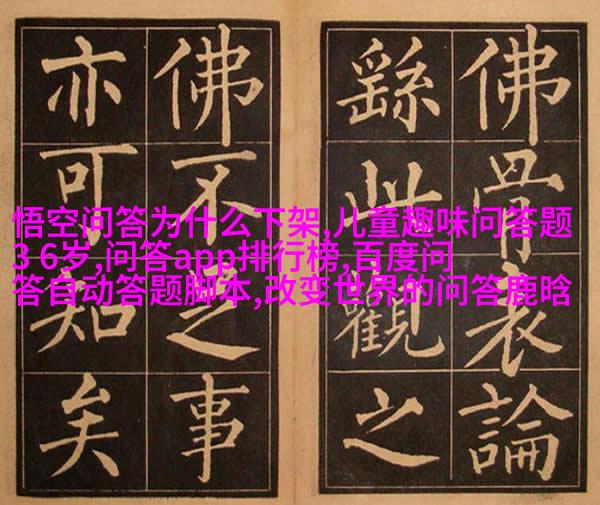 佛骨表論
繇此觀之
佛不足事
亦可知矣
悟空问答为什么下架,儿童趣味问答题
3 6岁,问答app排行榜,百度问
答自动答题脚本,改变世界的问答鹿晗